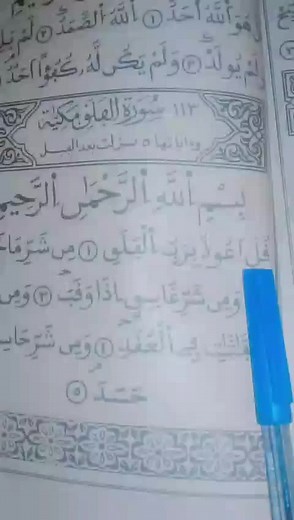 هُوَ ٱللَّهُ أَحَدٌ ١ ٱللَّهُ ٱلصَّمَدُ ٢ لَمْ
وَلَمْ يَكُن لَّهُۥ كُفُوًا أَحَدٌ ٣ لَمْ يُولَدْ
١١٣ سُورَةُ الفَلَقِ مَكِّيَّة
وآياتها ٥ نزلت بعد الفيل
بِسْمِ ٱللَّهِ ٱلرَّحْمَٰنِ ٱلرَّحِيمِ
قُلْ أَعُوذُ بِرَبِّ ٱلْفَلَقِ ١ مِن شَرِّ مَا
وَمِن شَرِّ غَاسِقٍ إِذَا وَقَبَ ٣ وَمِن
فِى ٱلْعُقَدِ ٤ وَمِن شَرِّ
حَسَدَ ٥